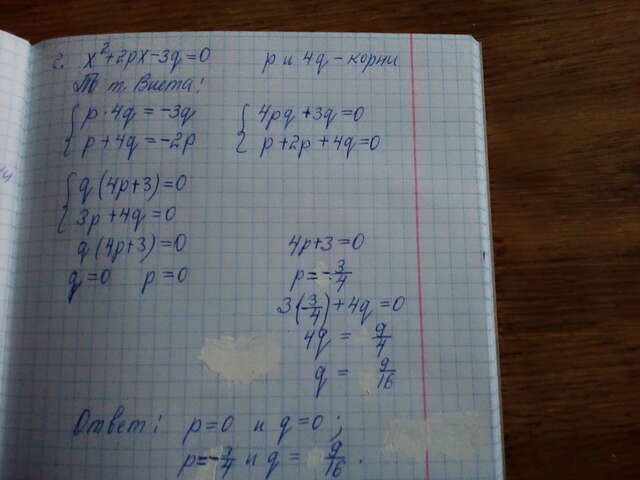 2. x²+2px-3q=0 p и 4q - корни
По т. Виета:
{ p·4q = -3q { 4pq+3q=0
{ p+4q = -2p { p+2p+4q=0
{ q(4p+3)=0
{ 3p+4q=0
q(4p+3)=0 4p+3=0
q=0 p=0 p=-3/4
3(3/4)+4q=0
4q = 9/4
q = 9/16
Ответ: p=0 и q=0;
p=-3/4 и q = 9/16.